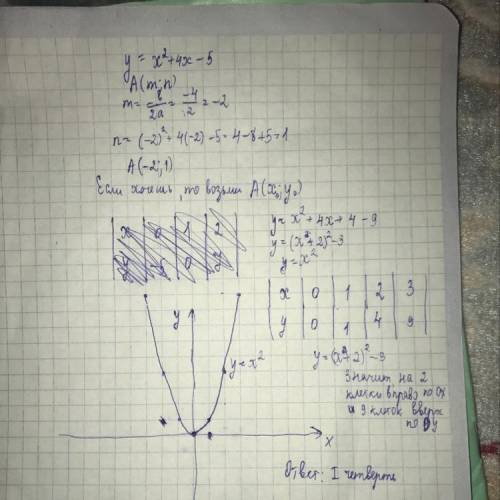 y = x² + 4x - 5
A(m; n)
m = b/2a = -4/2 = -2
n = (-2)² + 4(-2) - 5 = 4 - 8 + 5 = 1
A(-2; 1)
Если хочешь, то возьми A(x₀; y₀)
y = x² + 4x + 4 - 9
y = (x + 2)² - 3
y = x²
x 0 1 2 3
y 0 1 4 9
y = (x + 2)² - 3
Значит на 2
клетки вправо по Ox
и 9 клеток вверх
по Oy
y
y = x²
x
Ответ: I четверть